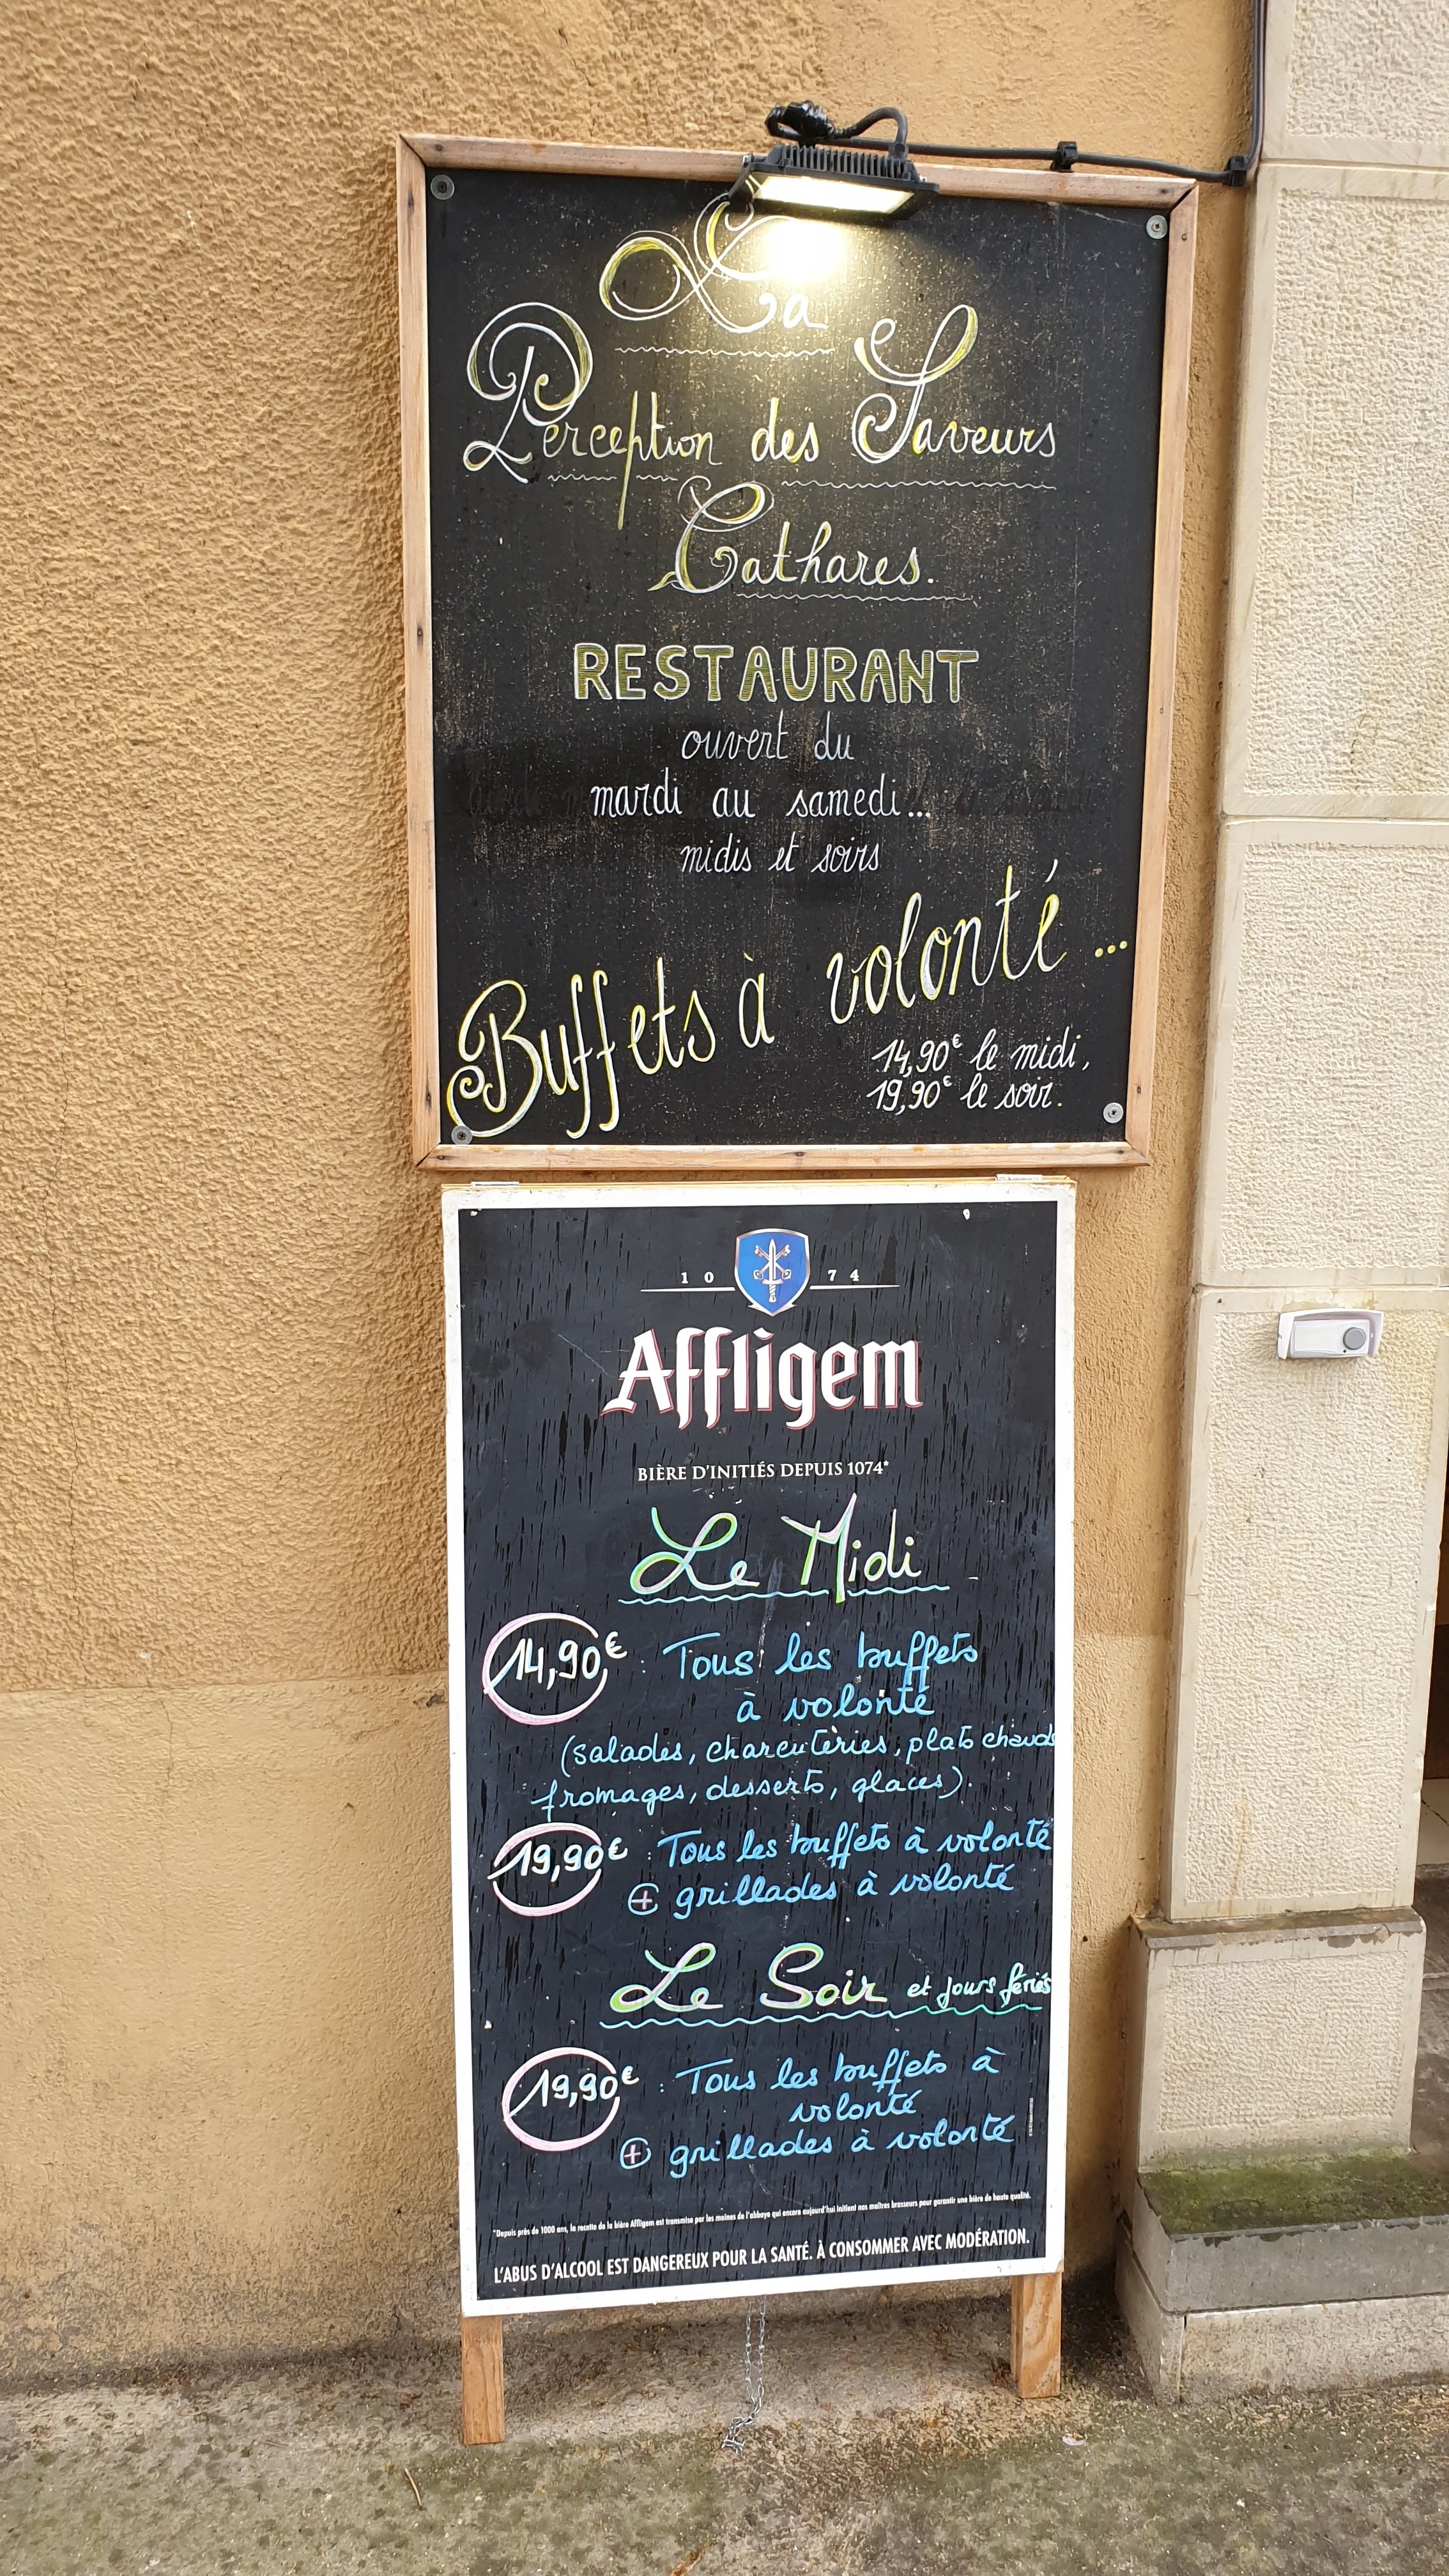 La
Perception des Saveurs
Cathares.
RESTAURANT
ouvert du
mardi au samedi...
midis et soirs
Buffets à volonté...
14,90€ le midi,
19,90€ le soir.
10 74
Affligem
BIÈRE D'INITIÉS DEPUIS 1074*
Le Midi
14,90€ : Tous les buffets
à volonté
(salades, charcuteries, plats chauds
fromages, desserts, glaces).
19,90€ : Tous les buffets à volonté
+ grillades à volonté
Le Soir et jours fériés
19,90€ : Tous les buffets à
volonté
+ grillades à volonté
*Depuis près de 1000 ans, la recette de la bière Affligem est transmise par les moines de l'abbaye qui encore aujourd'hui initient nos maîtres brasseurs pour garantir une bière de haute qualité.
L'ABUS D'ALCOOL EST DANGEREUX POUR LA SANTÉ. À CONSOMMER AVEC MODÉRATION.